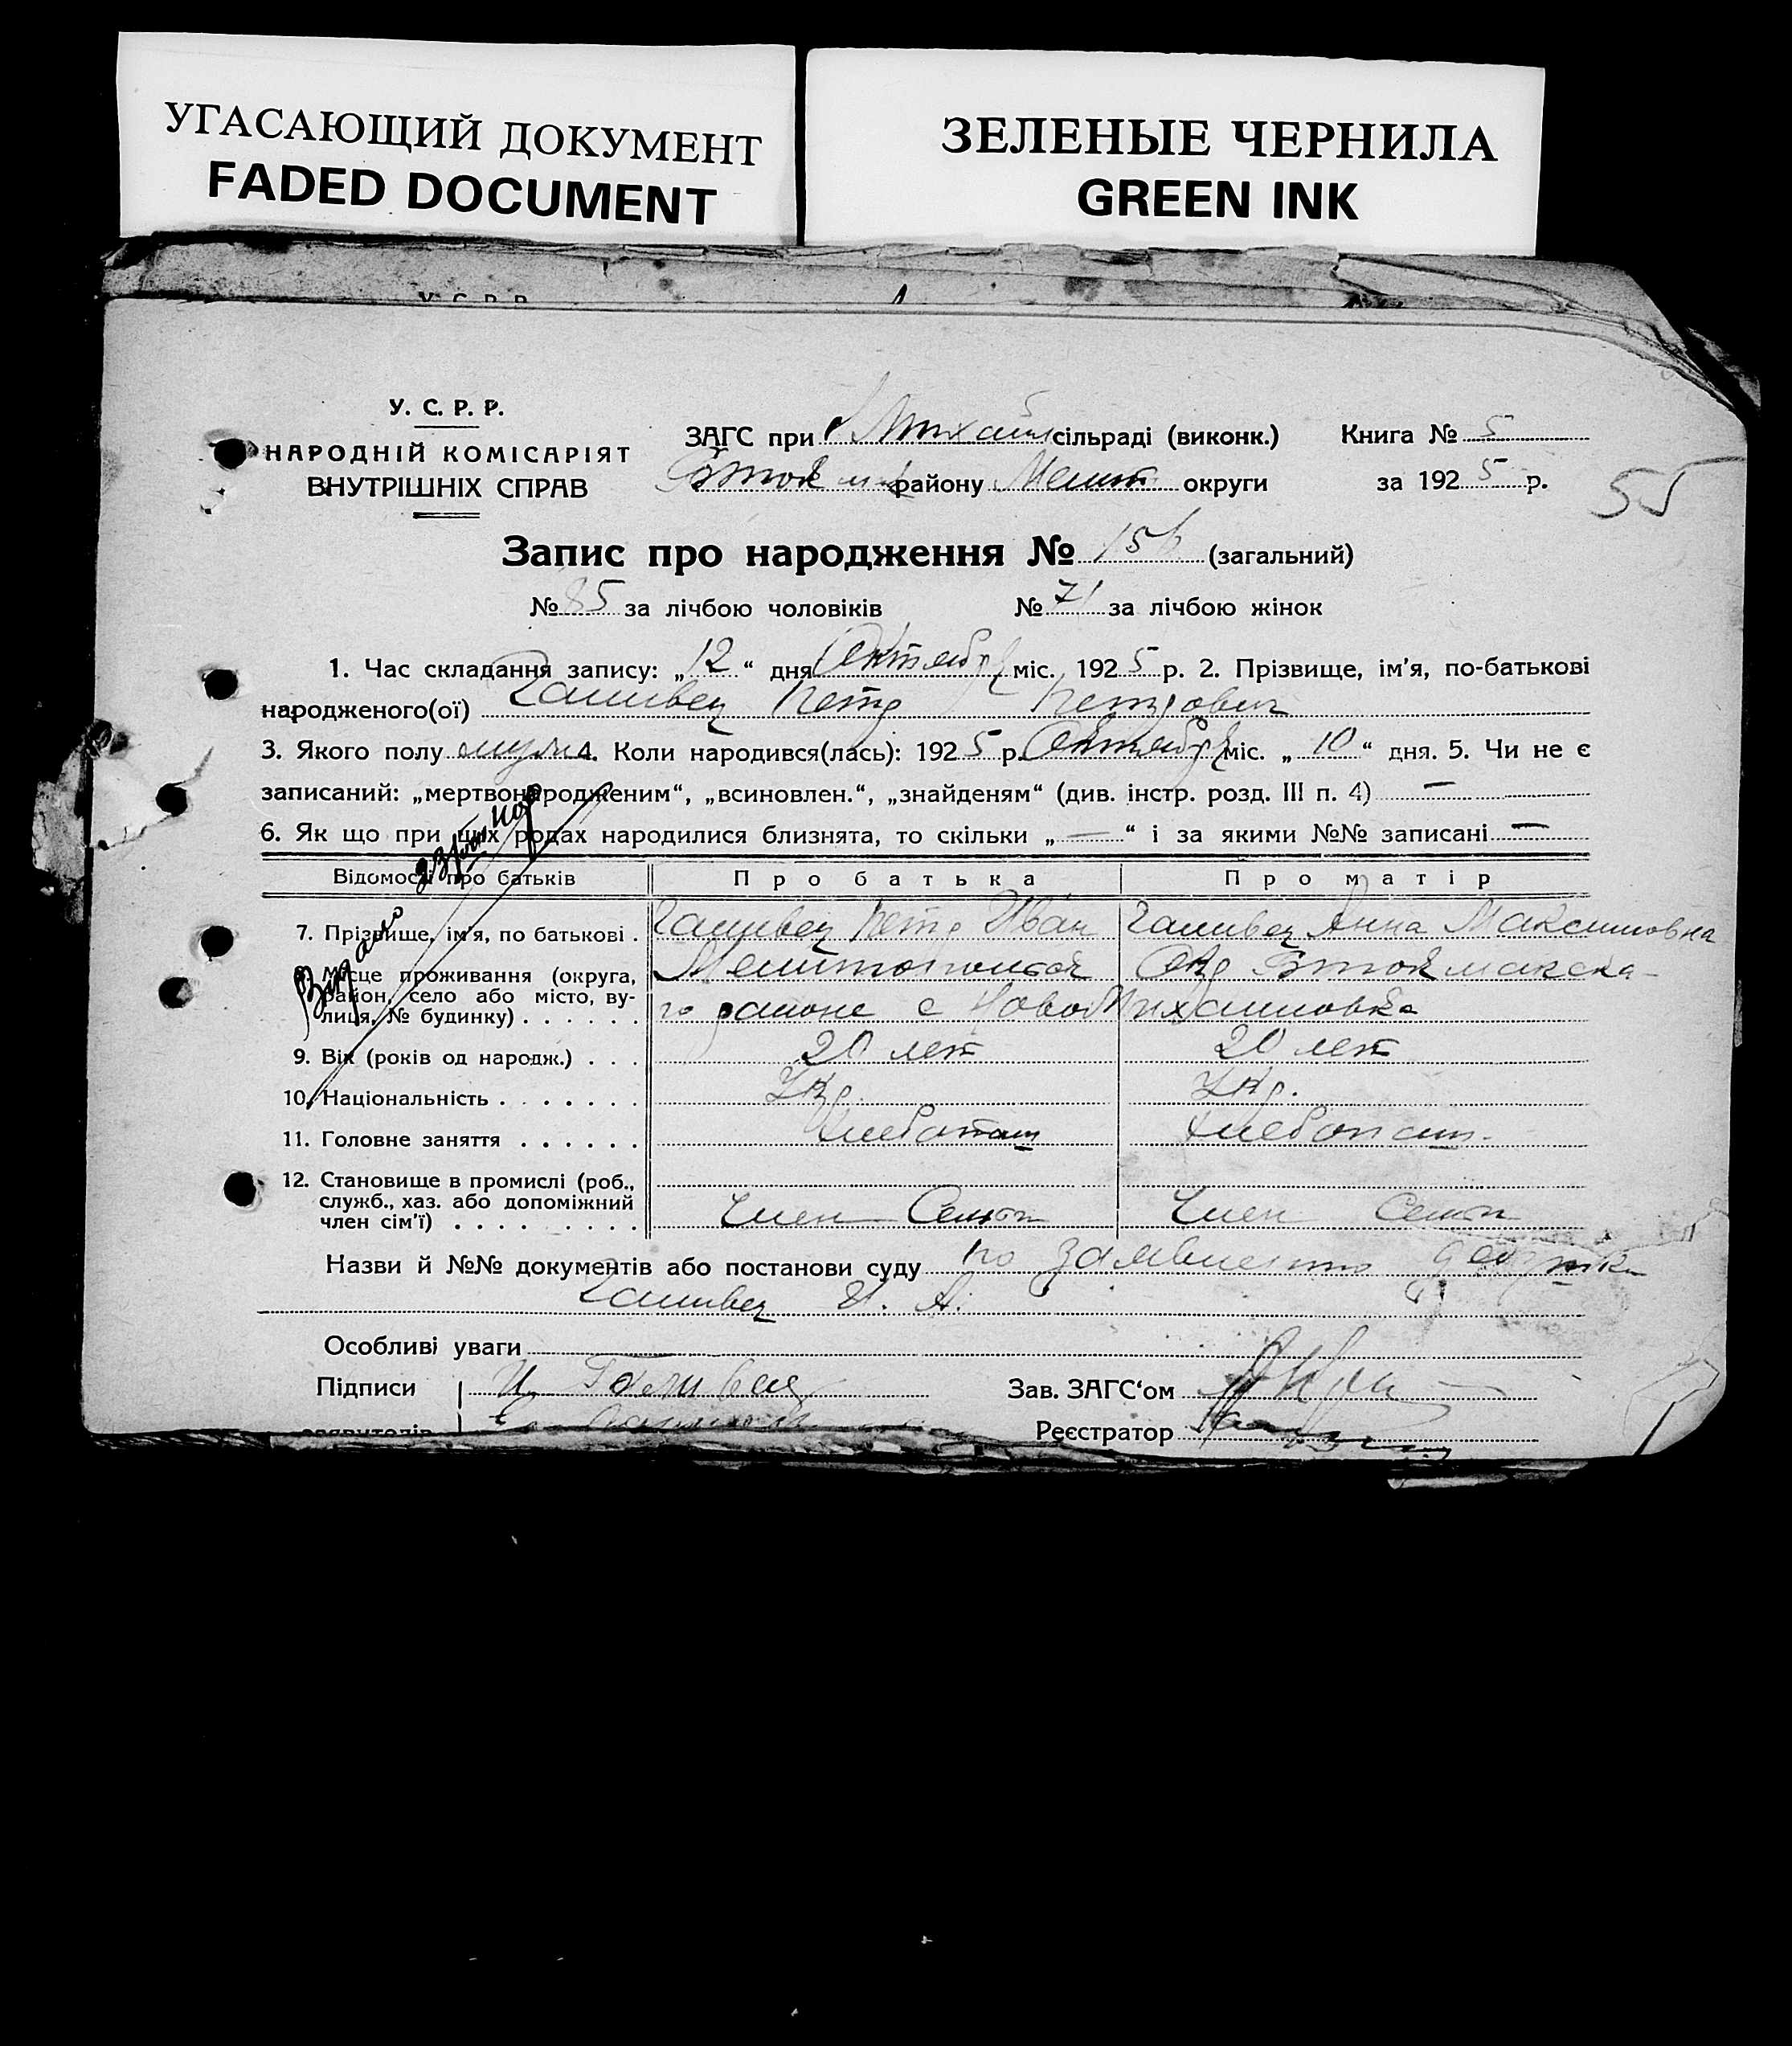 УГАСАЮЩИЙ ДОКУМЕНТ
FADED DOCUMENT
ЗЕЛЕНЫЕ ЧЕРНИЛА
GREEN INK
У. С. Р. Р.
У. С. Р. Р.
НАРОДНІЙ КОМІСАРІЯТ
ВНУТРІШНІХ СПРАВ
ЗАГС при Михайл сільраді (виконк.) Книга № 5
району Мелит округи за 1925 р.
55
Запис про народження № 156 (загальний)
№ 85 за лічбою чоловіків № 71 за лічбою жінок
1. Час складання запису: „12“ дня Октября міс. 1925 р. 2. Прізвище, ім’я, по-батькові
народженого(ої) Галивец Петр Петрович
3. Якого полу муж 4. Коли народився(лась): 1925 р. Октября міс. „10“ дня. 5. Чи не є
записаний: „мертвонародженим“, „всиновлен.“, „знайденям“ (див. інстр. розд. III п. 4) —
6. Як що при цих родах народилися близнята, то скільки „—“ і за якими №№ записані —
Відомості про батьків Про батька Про матір
7. Прізвище, ім’я, по батькові . Галивец Петр Иван Галивец Анна Максимовна
8. Місце проживання (округа, Мелитопольской Окр Б Токмакска-
район, село або місто, ву- го районе с НовоМихайловка
лиця, № будинку) . . . . . .
9. Вік (років од народж.) . . . 20 лет 20 лет
10. Національність . . . . . . . Укр. Укр.
11. Головне заняття . . . . . . Хлебопаш Хлебопаш.
12. Становище в промислі (роб.,
служб., хаз. або допоміжний
член сім’ї) . . . . . . . . . Член Семьи Член Семьи
Назви й №№ документів або постанови суду по заявлению дедушки
Галивец И. А.
Особливі уваги
Підписи И. Галивец Зав. ЗАГС‘ом
заявителів Реєстратор